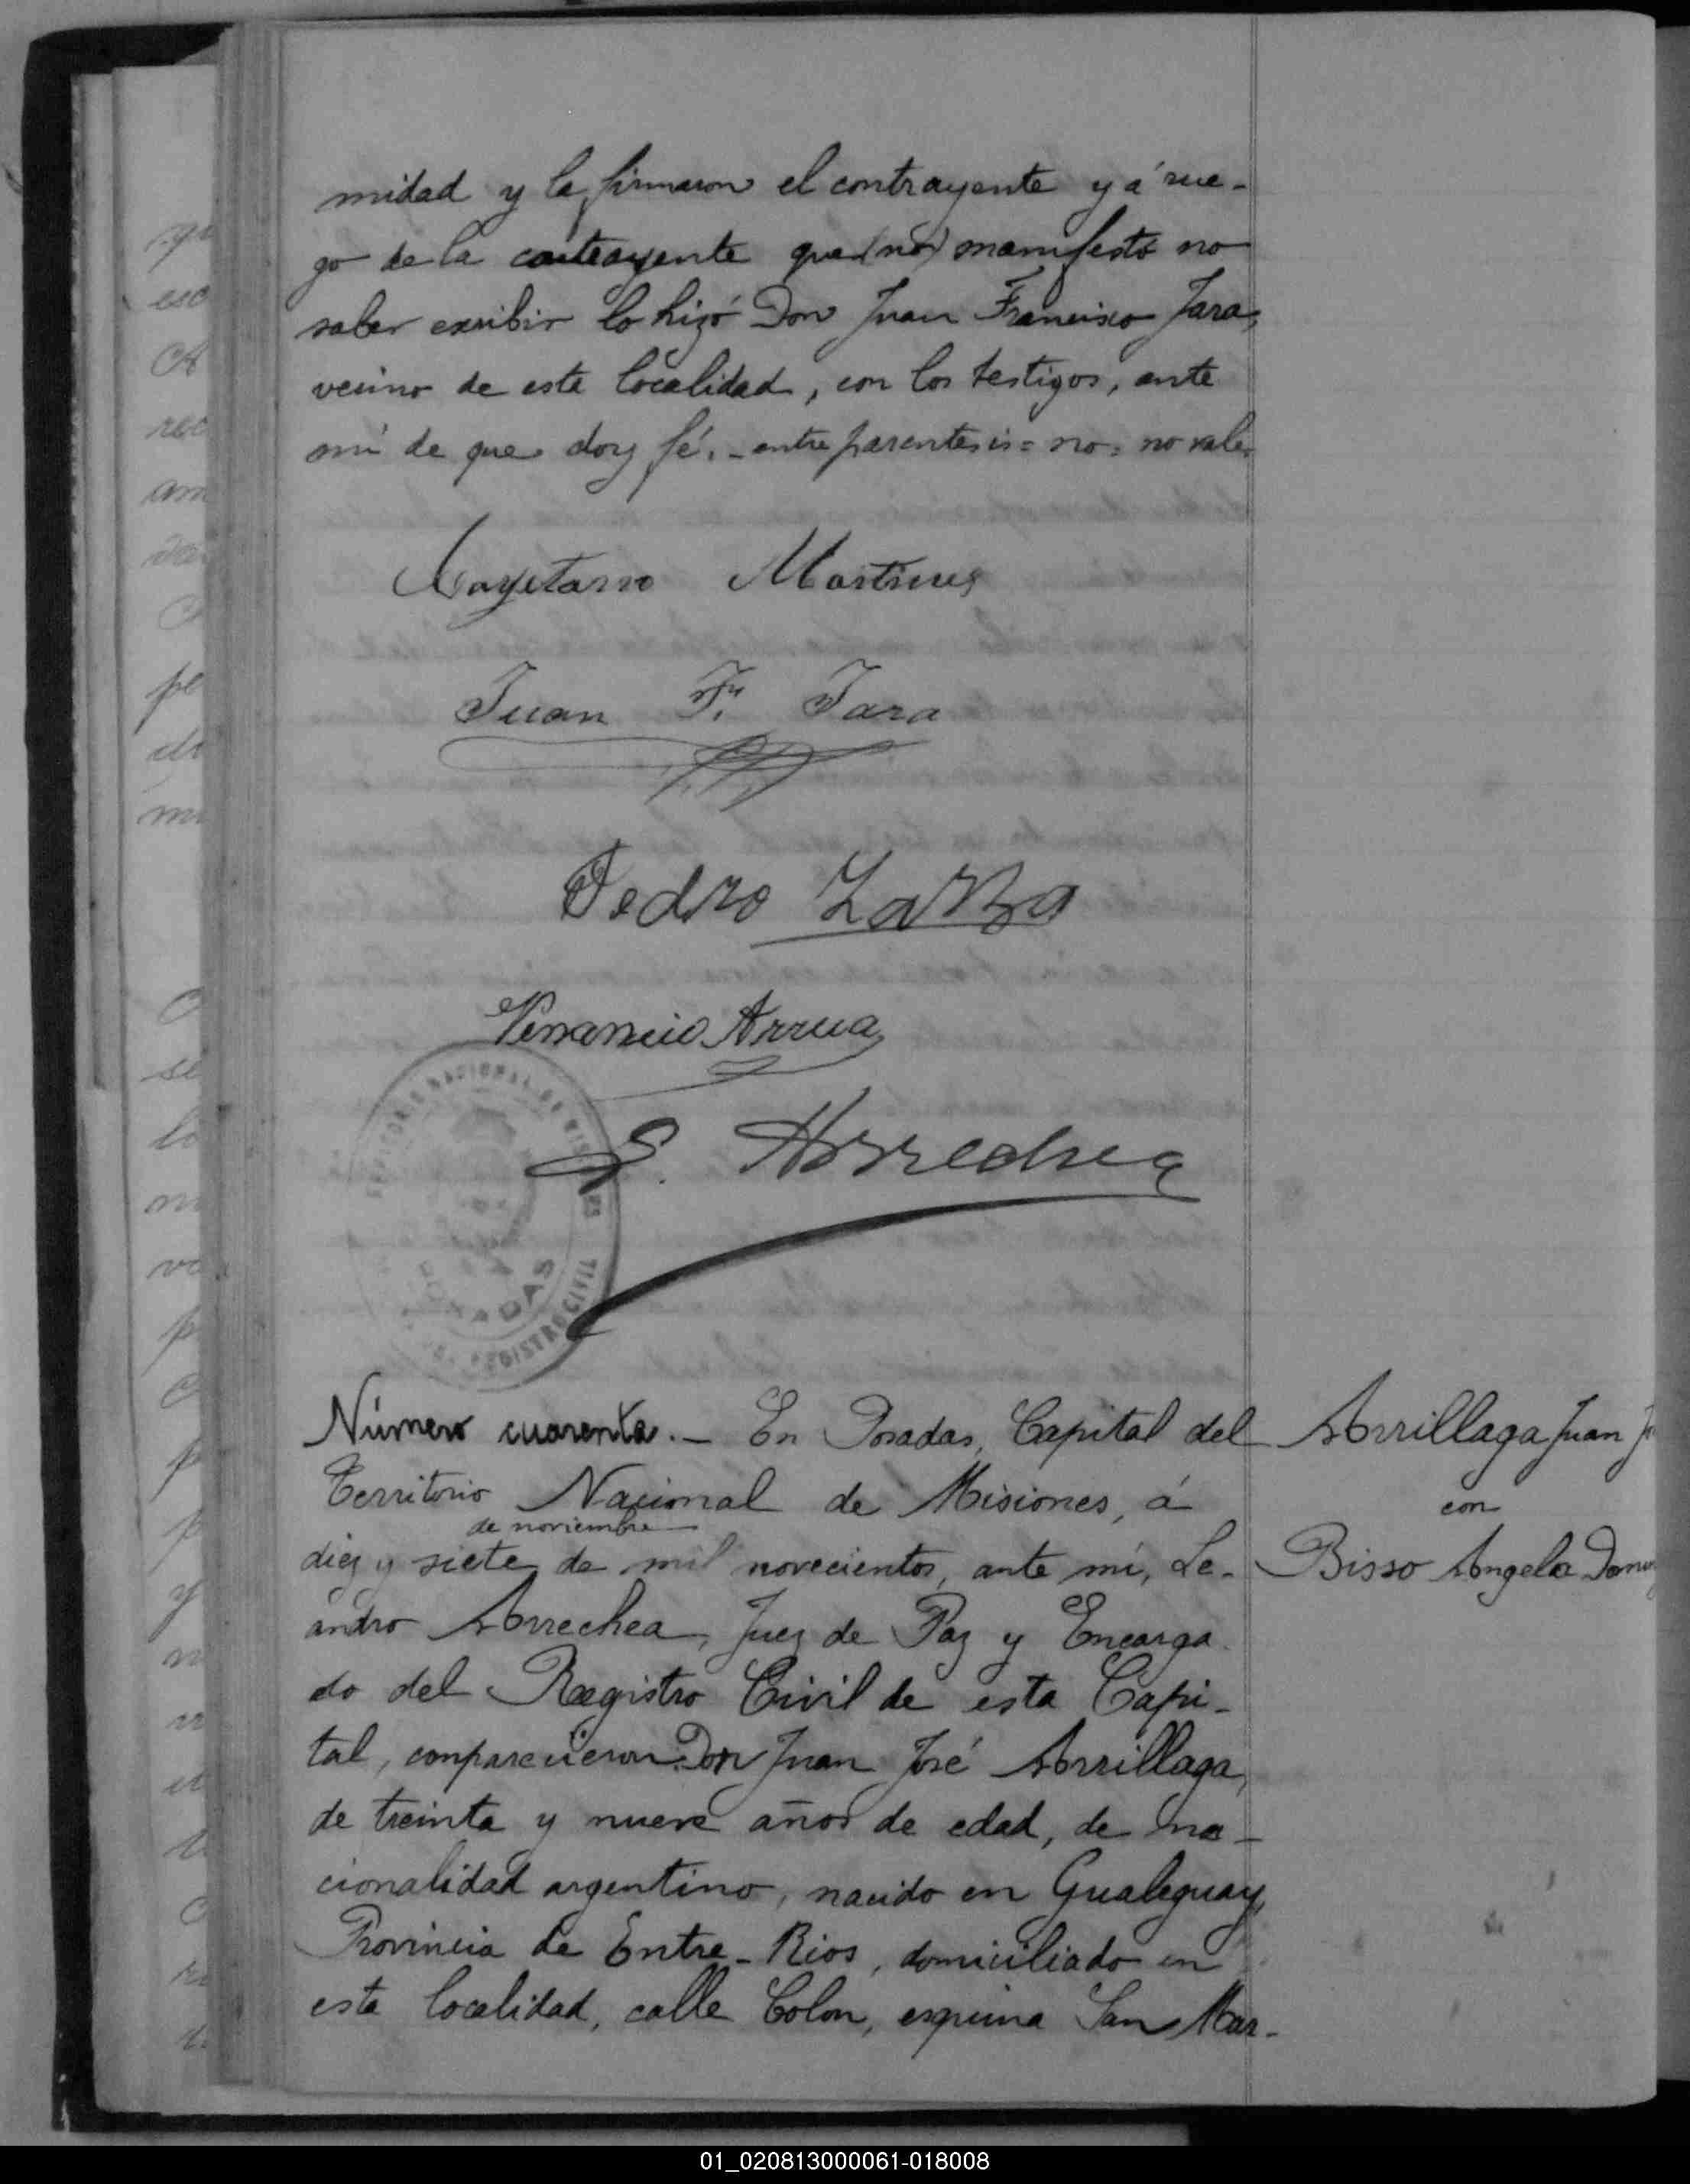 midad y la firmaron el contrayente y á rue-
go de la contrayente que (no) manifestó no
saber escribir lo hizó Don Juan Francisco Jara,
vecino de esta localidad, con los testigos, ante
mí de que doy fé. - entre parentesis = no = no vale.
Cayetano Martines
Juan F. Jara
Pedro
Venancio Arrua
L. Arrechea
TERRITORIO NACIONAL DE MISIONES
POSADAS
REGISTRO CIVIL
Número cuarenta. - En Posadas, Capital del
Territorio Nacional de Misiones, á
de noviembre
diez y siete de mil novecientos, ante mí, Le-
andro Arrechea, Juez de Paz y Encarga-
do del Registro Civil de esta Capi-
tal, comparecieron: Don Juan José Arrillaga,
de treinta y nueve años de edad, de na-
cionalidad argentino, nacido en Gualeguay,
Provincia de Entre-Rios, domiciliado en
esta localidad, calle Colon, esquina San Mar-
Arrillaga Juan
con
Bisso Angela
01_020813000061-018008